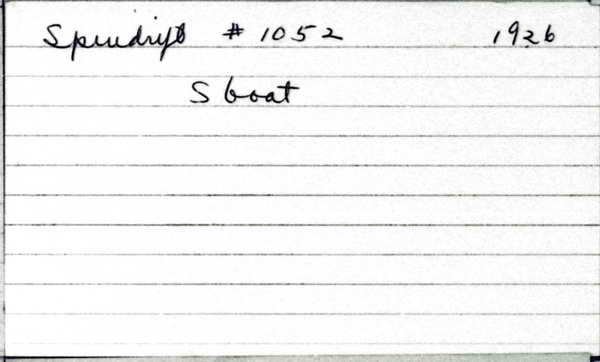 Spindrift # 1052 1926
S boat